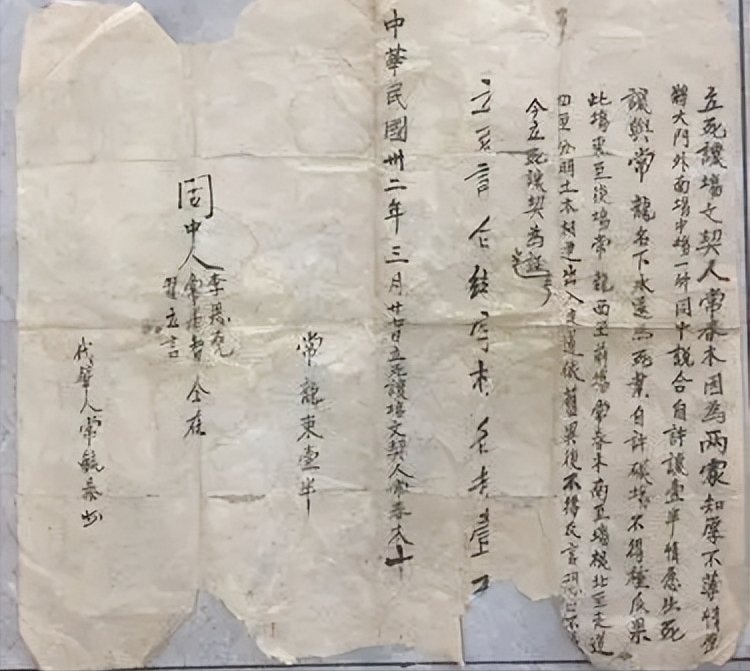 立死讓場文契人常春木因為兩家知厚不薄情愿
將大門外南場中場一所同中說合自許讓壹半情愿出死
讓與常龍名下永遠為死業自許碾場不得種瓜果
此場東至後場常龍西至前場常春木南至場棧北至走道
四至分明土木相連出入走道依舊異後不得反言
今立死讓契為證
立 言合 存
中華民國卅二年三月廿七日立死讓場文契人常春木十
常龍東壹半
同中人
李 克
常
立言
仝在
代筆人常毓